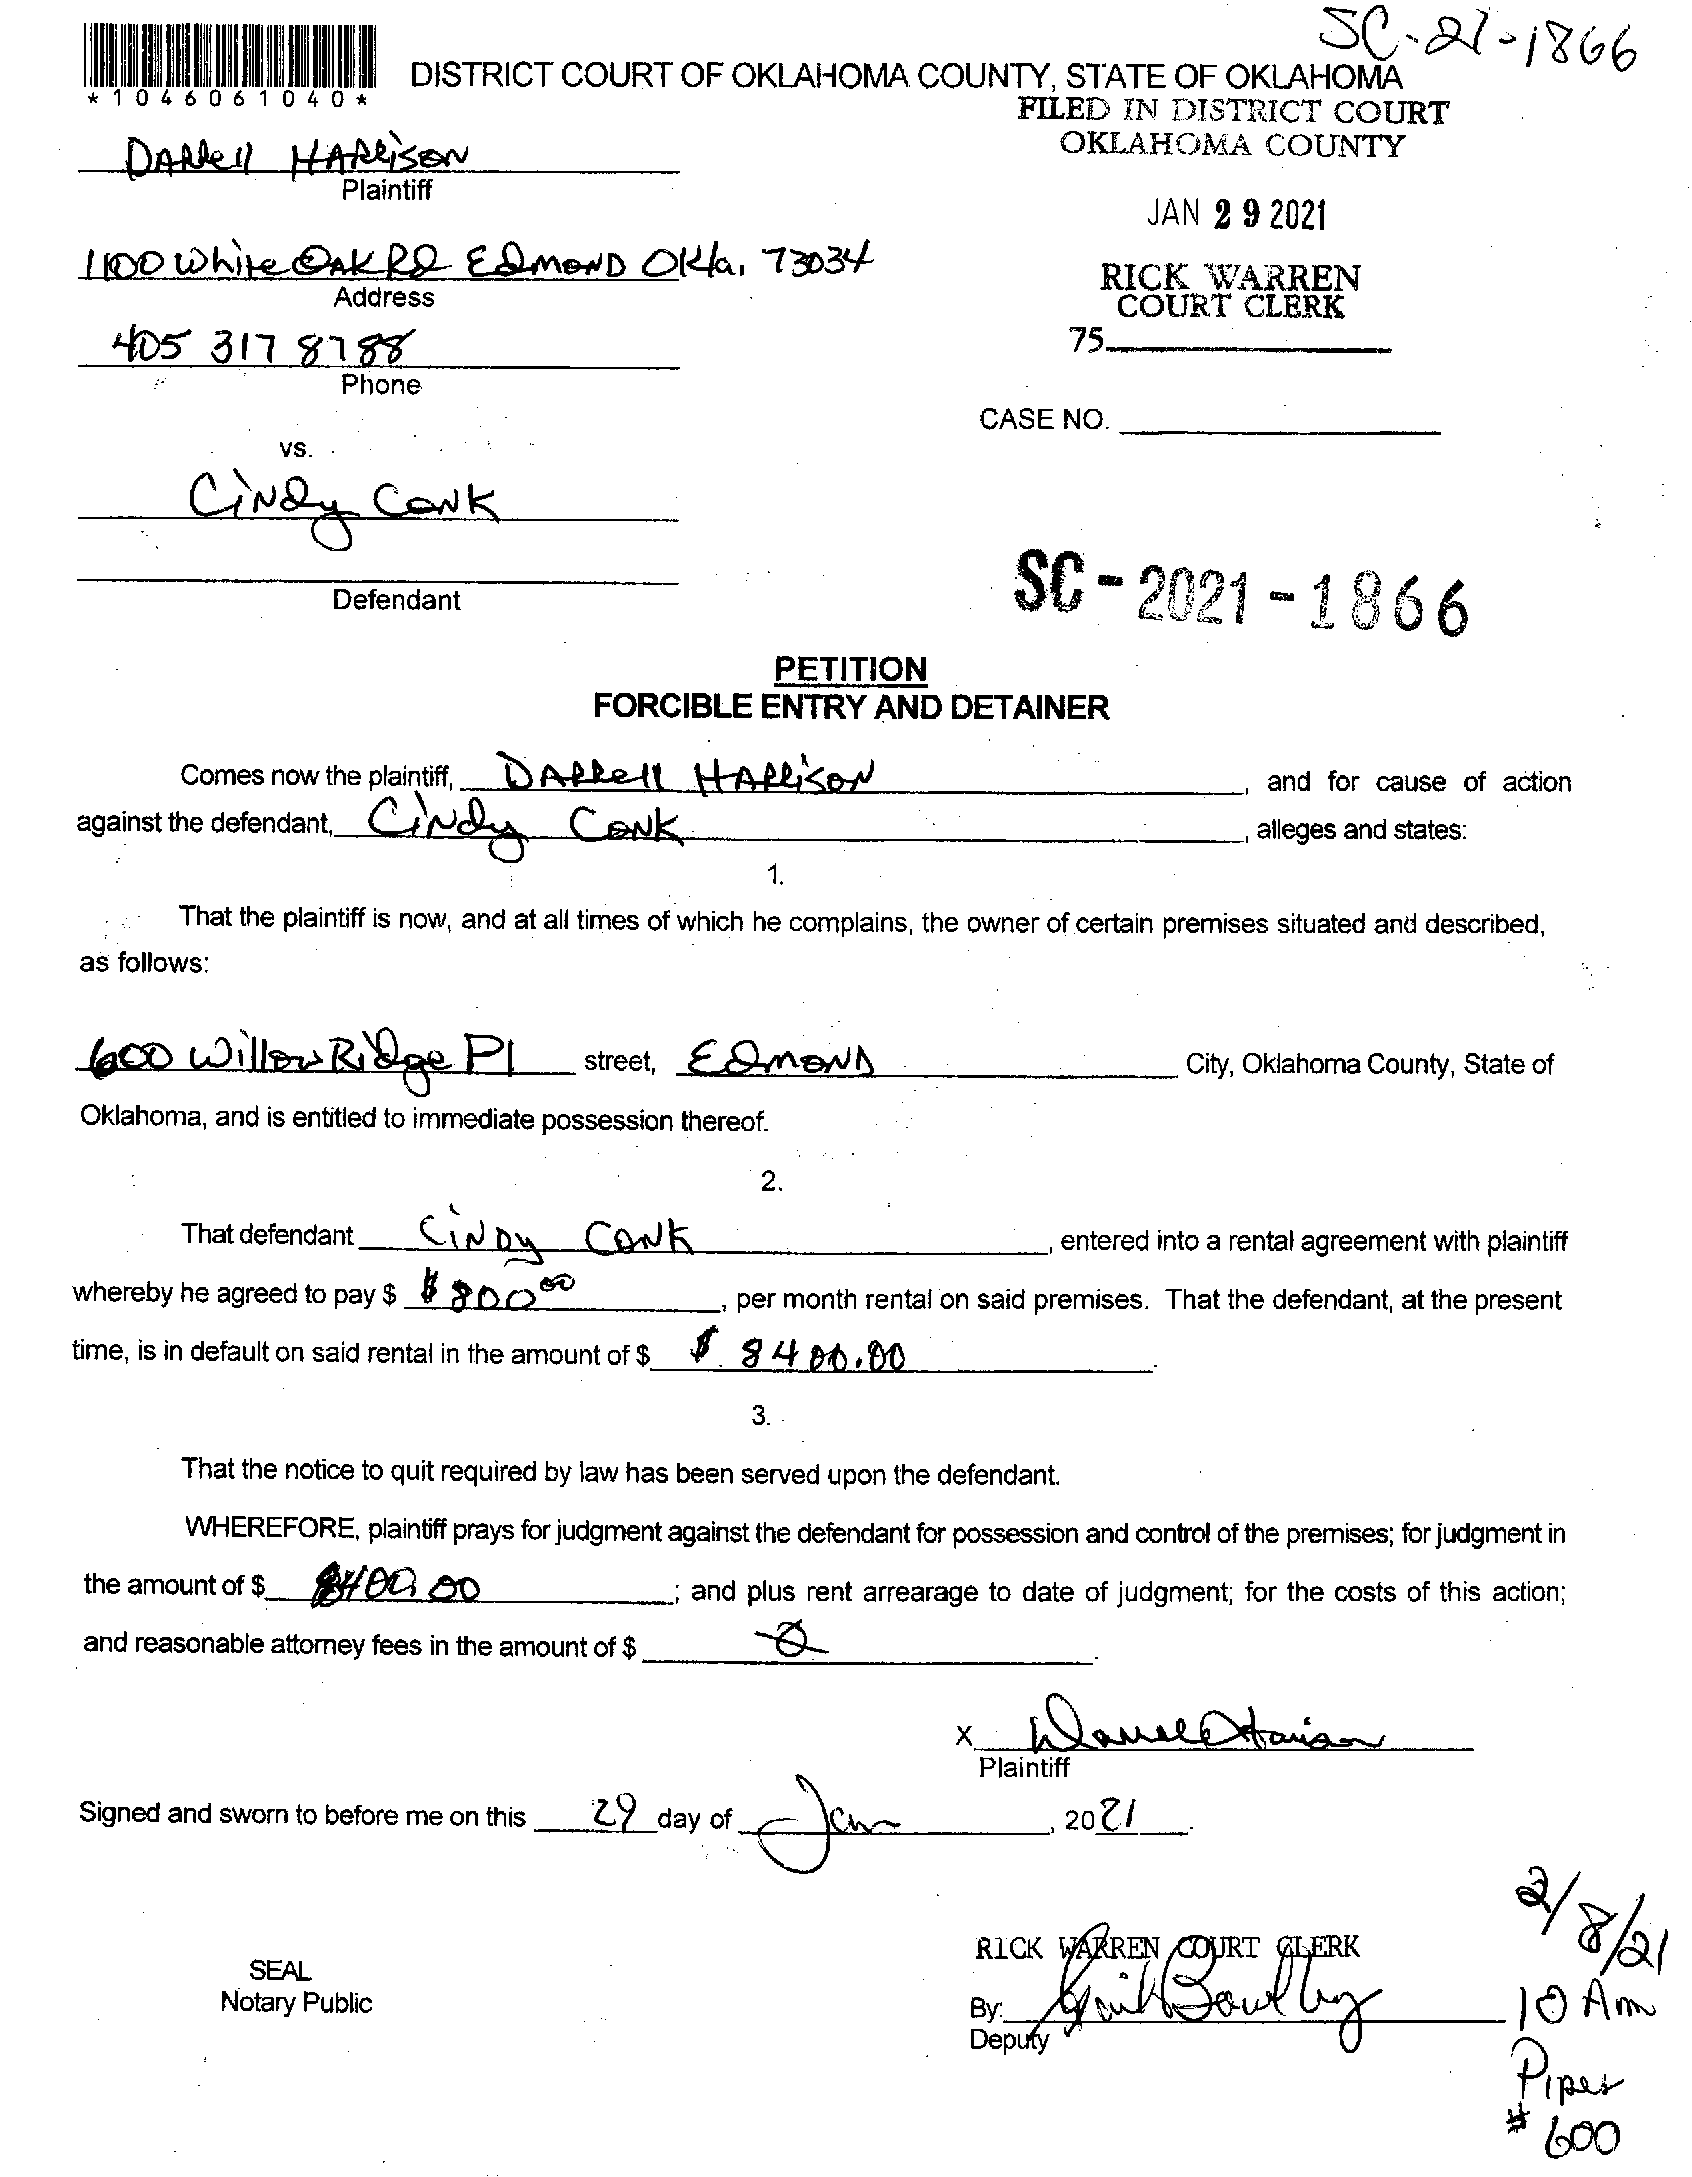 SC-21-1866
*1046061040*
DISTRICT COURT OF OKLAHOMA COUNTY, STATE OF OKLAHOMA
FILED IN DISTRICT COURT
OKLAHOMA COUNTY
DARRell HARRiSON
Plaintiff
JAN 29 2021
1100 White OAK RD EDMOND Okla, 73034
Address
RICK WARREN
COURT CLERK
405 317 8788
Phone
75
CASE NO.
vs.
CiNDy CONK
Defendant
SC-2021-1866
PETITION
FORCIBLE ENTRY AND DETAINER
Comes now the plaintiff, DARRell HARRiSON, and for cause of action
against the defendant, CiNDy CONK, alleges and states:
1.
That the plaintiff is now, and at all times of which he complains, the owner of certain premises situated and described,
as follows:
600 Willow Ridge Pl street, EDMOND City, Oklahoma County, State of
Oklahoma, and is entitled to immediate possession thereof.
2.
That defendant CiNDy CONK, entered into a rental agreement with plaintiff
whereby he agreed to pay $ $800.00, per month rental on said premises. That the defendant, at the present
time, is in default on said rental in the amount of $ $ 8400.00.
3.
That the notice to quit required by law has been served upon the defendant.
WHEREFORE, plaintiff prays for judgment against the defendant for possession and control of the premises; for judgment in
the amount of $ 8400.00; and plus rent arrearage to date of judgment; for the costs of this action;
and reasonable attorney fees in the amount of $ 0.
X Darrell Harrison
Plaintiff
Signed and sworn to before me on this 29 day of Jan, 2021.
SEAL
Notary Public
RICK WARREN COURT CLERK
By:
Deputy
2/8/21
10 Am
Piper
# 600